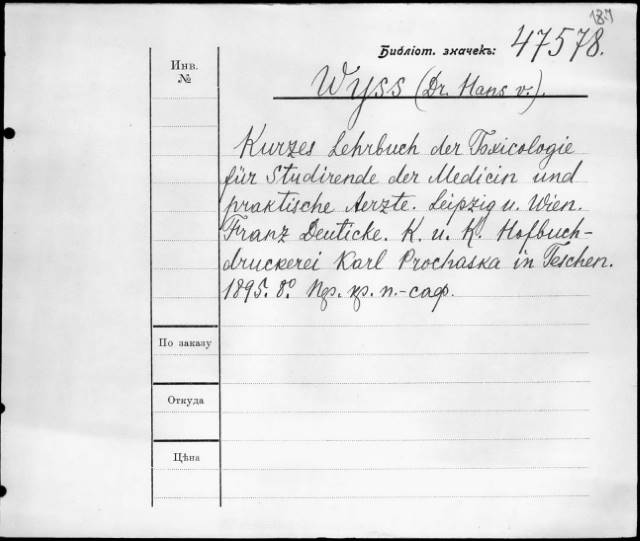 187
Библіот. значекъ: 47578.
Инв.
№
Wyss (Dr. Hans v.).
Kurzes Lehrbuch der Toxicologie
für Studirende der Medicin und
praktische Aerzte. Leipzig u. Wien.
Franz Deuticke. K. u. K. Hofbuch-
druckerei Karl Prochaska in Teschen.
1895. 8º. Пер. кр. п.-саф.
По заказу
Откуда
Цѣна